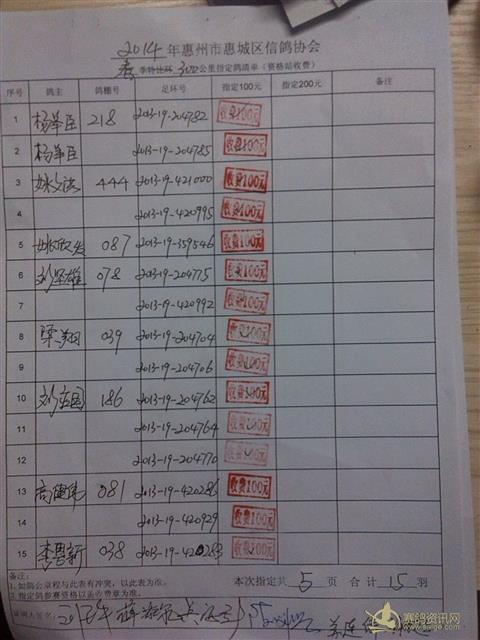 2014年惠州市惠城区信鸽协会
春季特比环300公里指定鸽清单（资格站收费）
序号 鸽主 鸽棚号 足环号 指定100元 指定200元 备注
1 杨华臣 218 2013-19-204782 收费100元
2 杨华臣 2013-19-204785 收费100元
3 444 2013-19-421000 收费100元
4 2013-19-420995 收费100元
5 087 2013-19-359546 收费100元
6 078 2013-19-204775 收费100元
7 2013-19-420992 收费100元
8 梁翔 039 2013-19-204704 收费100元
9 2013-19-204706 收费100元
10 186 2013-19-204762 收费100元
11 2013-19-204764 收费100元
12 2013-19-204770 收费100元
13 高健伟 081 2013-19-420286 收费100元
14 2013-19-420929 收费100元
15 李思新 038 2013-19-420283 收费100元
备注：
1.如鸽公棚程与此表有冲突，以此表为准。
2.指定鸽参赛资格以盖收费章为准。
本次指定共 5 页 合计 15 羽
证明人签名：
赛鸽资讯网
www.saige.com